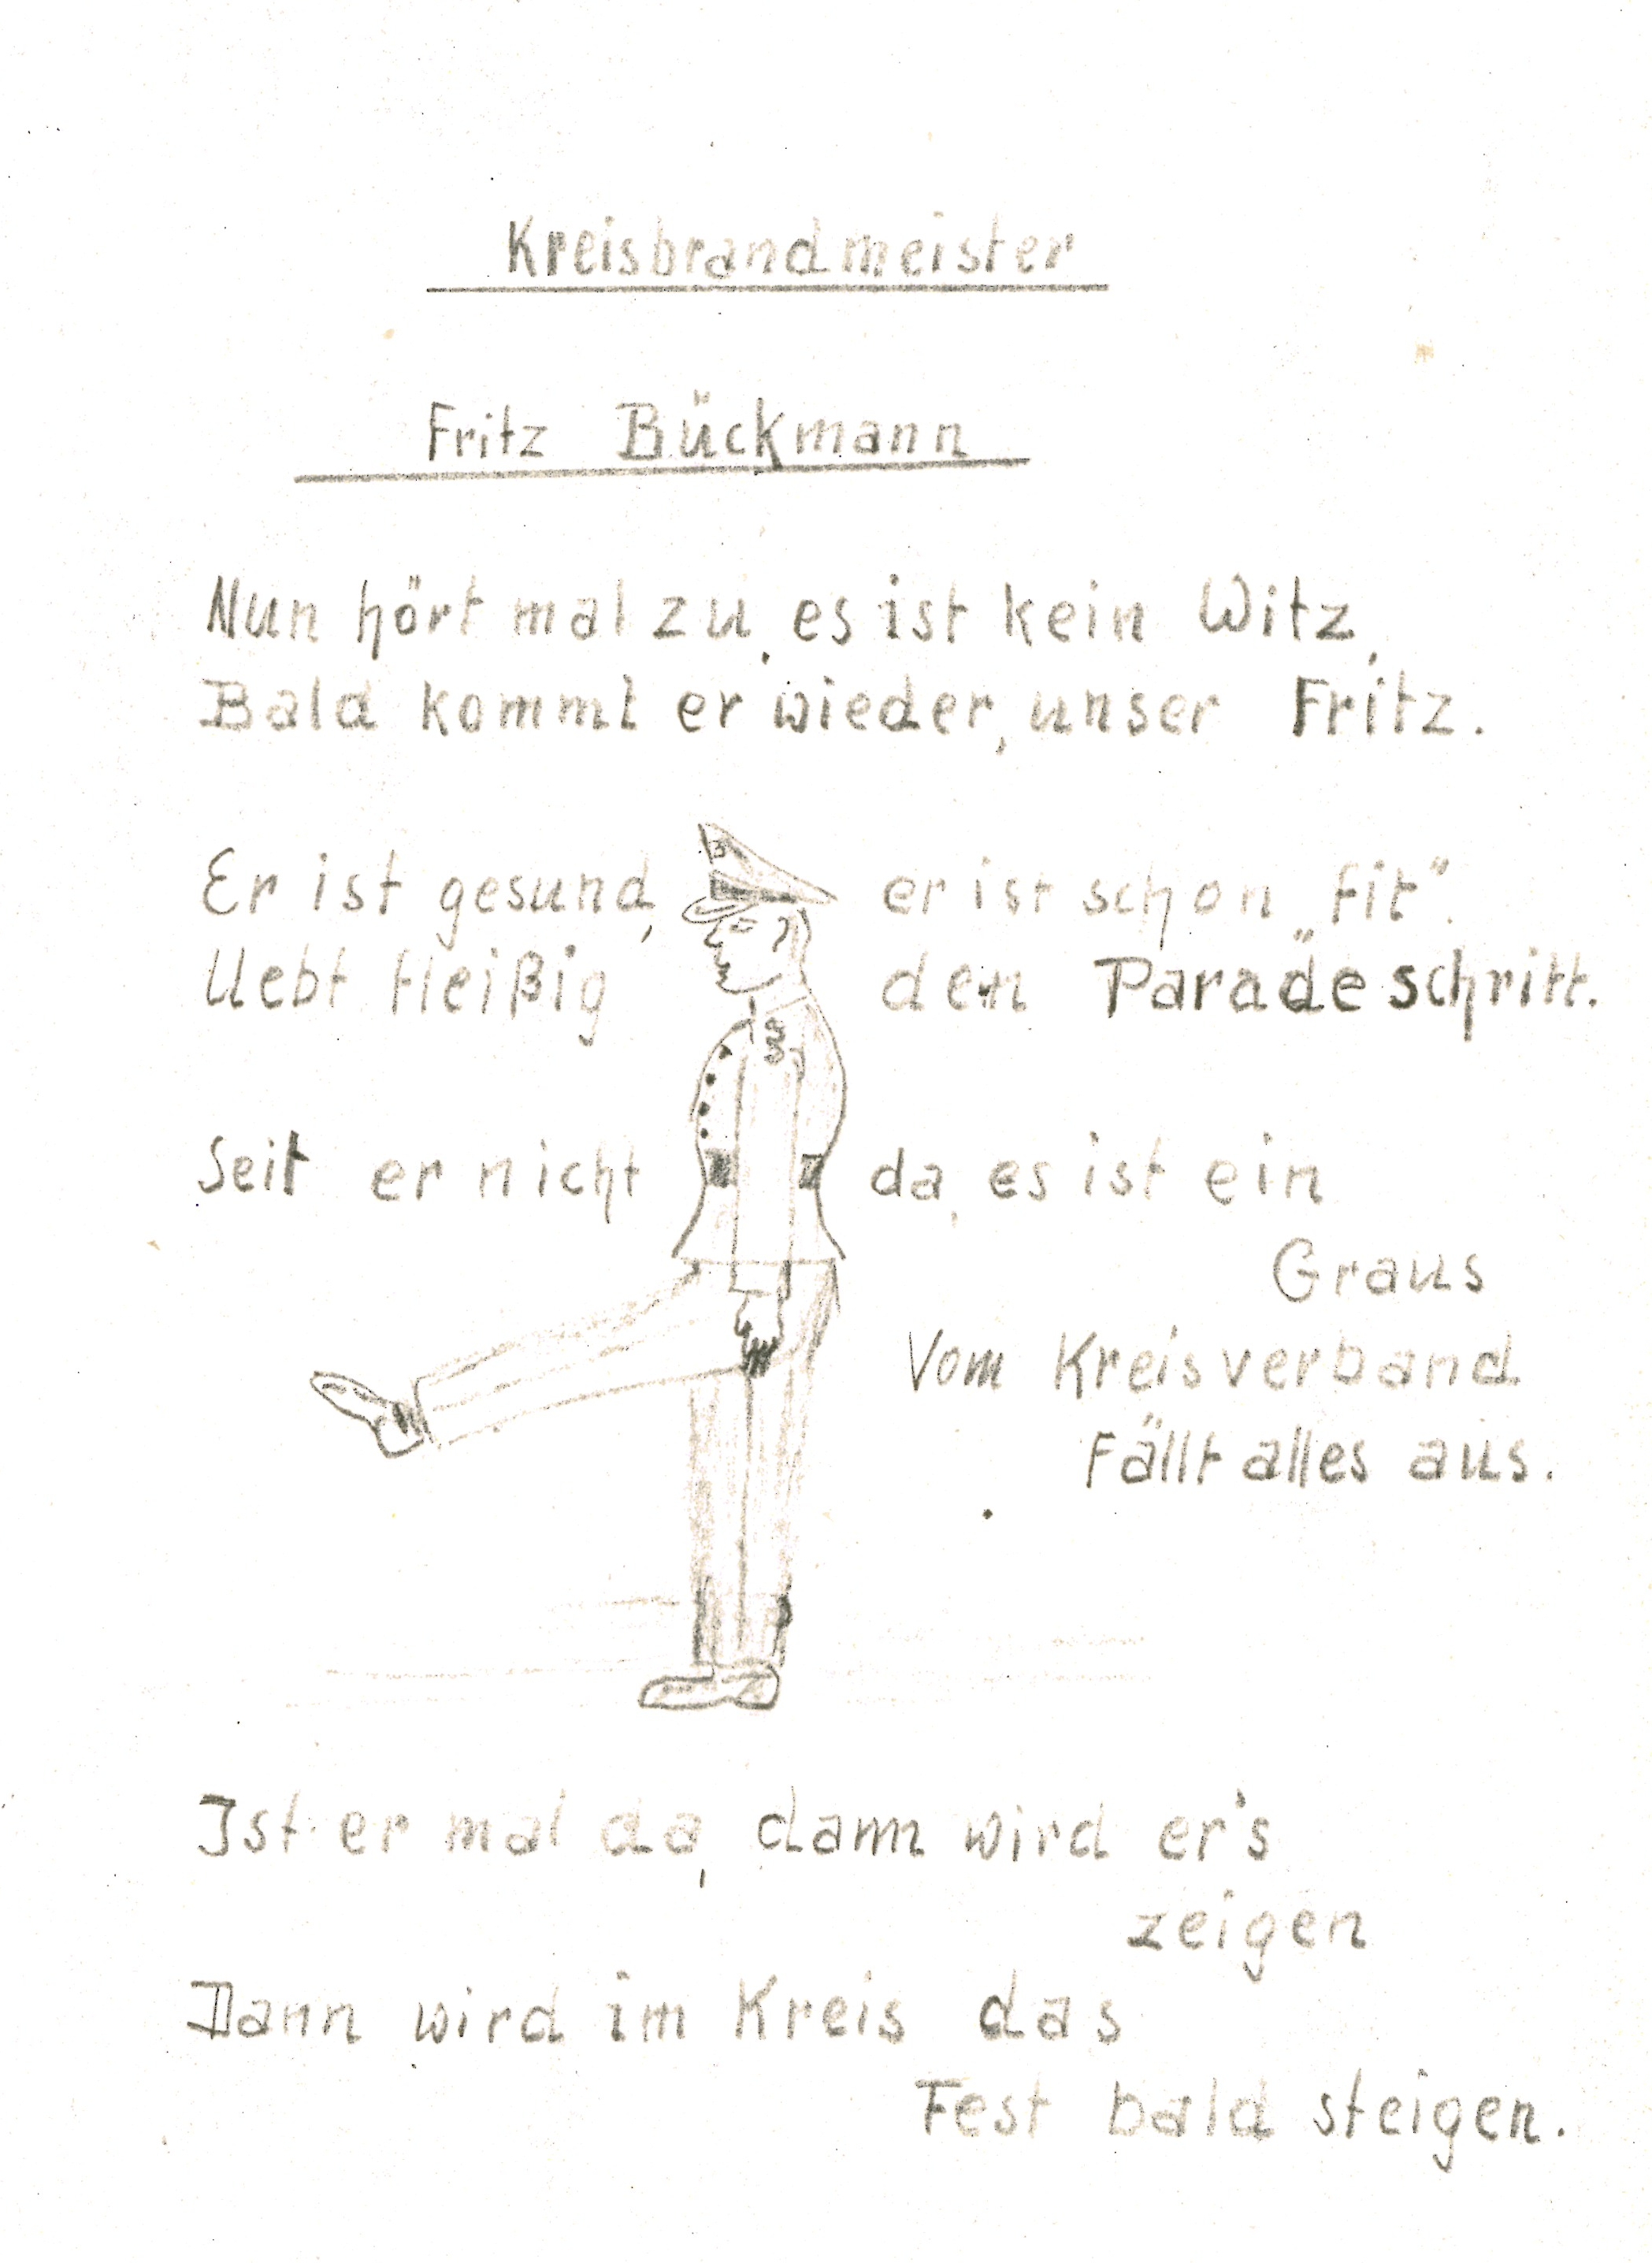 Kreisbrandmeister
Fritz Bückmann
Nun hört mal zu, es ist kein Witz,
Bald kommt er wieder, unser Fritz.
Er ist gesund, er ist schon „fit".
Uebt fleißig den Paradeschritt.
Seit er nicht da, es ist ein
Graus
Vom Kreisverband
Fällt alles aus.
Ist er mal da, dann wird er's
zeigen
Dann wird im Kreis das
Fest bald steigen.